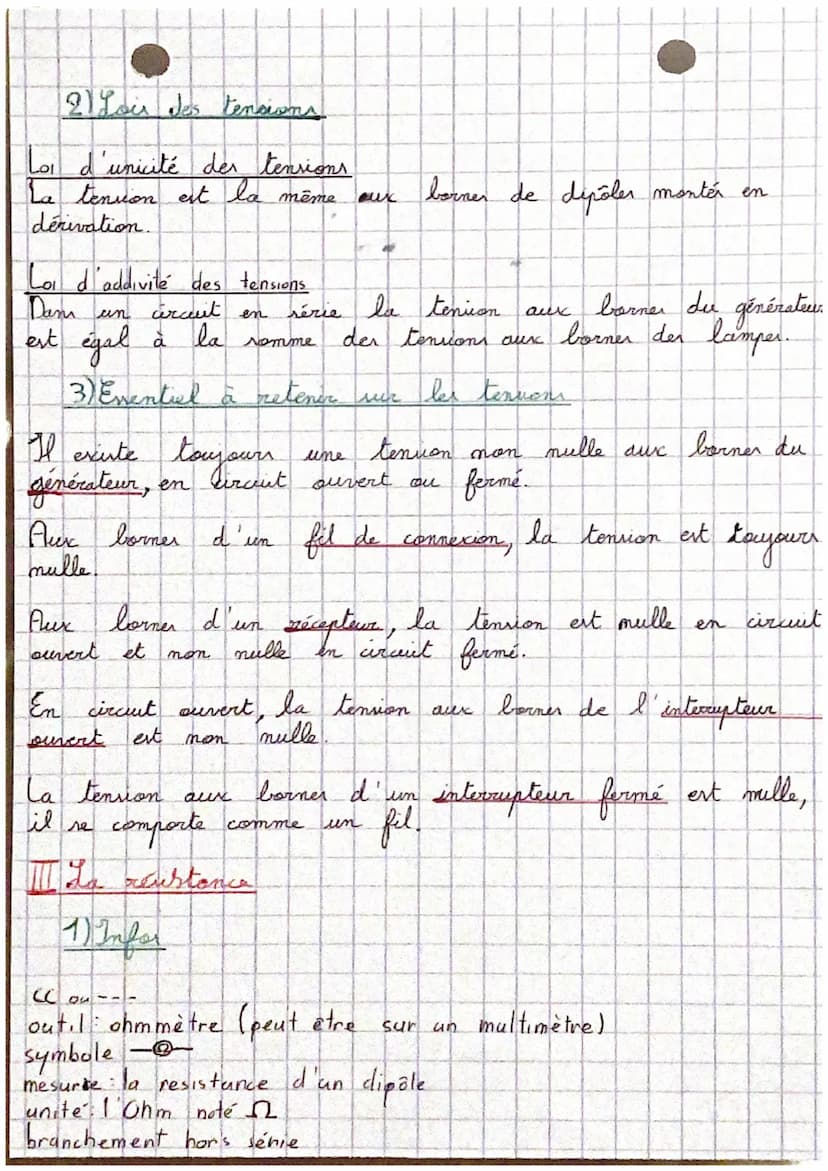 2) Lois des tensions
Loi d'unicité des tensions
La tension est la même aux bornes de dipôles montés en
dérivation.
Loi d'addivité des tensions
Dans un circuit en série la tension aux bornes du générateur
est égal à la somme des tensions aux bornes des lampes.
3) Essentiel à retenir sur les tensions
Il existe toujours une tension non nulle aux bornes du
générateur, en circuit ouvert ou fermé.
Aux bornes d'un fil de connexion, la tension est toujours
nulle.
Aux bornes d'un récepteur, la tension est nulle en circuit
ouvert et non nulle en circuit fermé.
En circuit ouvert, la tension aux bornes de l'interrupteur
ouvert est non nulle.
La tension aux bornes d'un interrupteur fermé est nulle,
il se comporte comme un fil.
III La résistance
1) Infos
CC ou ---
outil : ohmmètre (peut être sur un multimètre)
symbole —Ω—
mesure : la resistance d'un dipôle
unité : l'Ohm noté Ω
branchement hors série